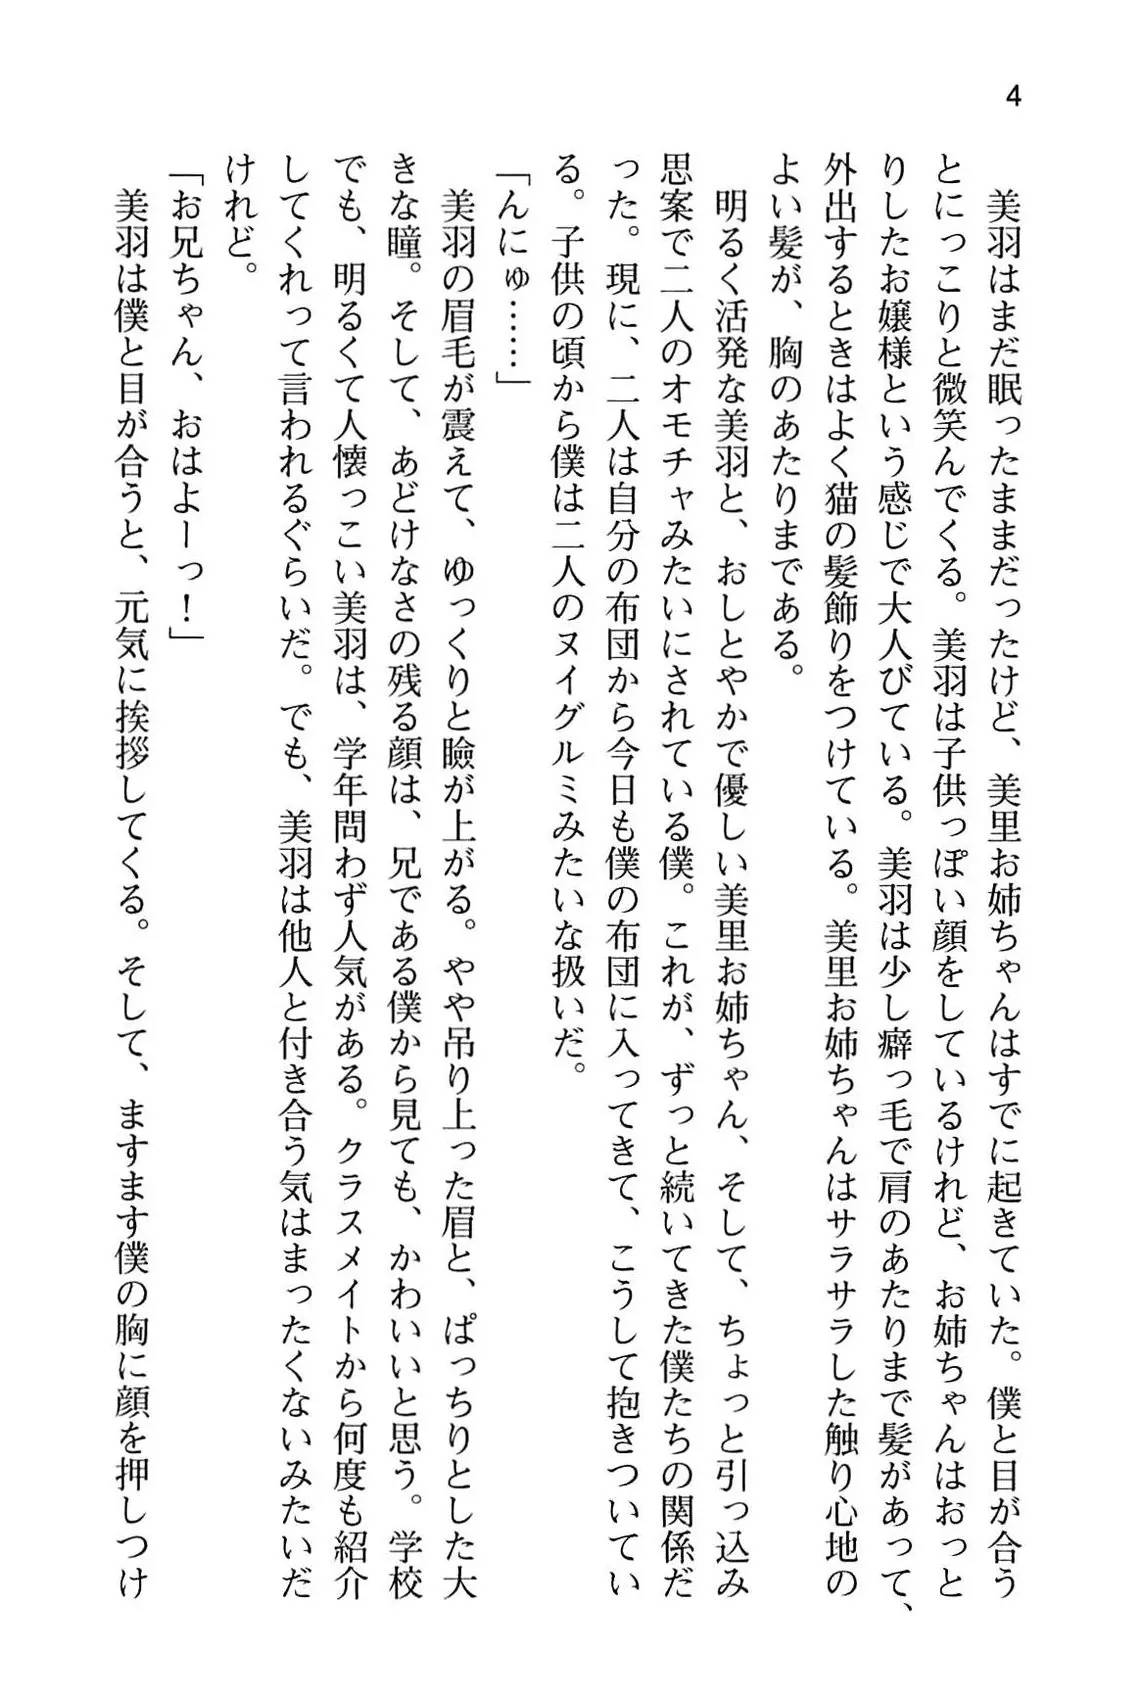 4
　美羽はまだ眠ったままだったけど、美里お姉ちゃんはすでに起きていた。僕と目が合う
とにっこりと微笑んでくる。美羽は子供っぽい顔をしているけれど、お姉ちゃんはおっと
りしたお嬢様という感じで大人びている。美羽は少し癖っ毛で肩のあたりまで髪があって、
外出するときはよく猫の髪飾りをつけている。美里お姉ちゃんはサラサラした触り心地の
よい髪が、胸のあたりまである。
　明るく活発な美羽と、おしとやかで優しい美里お姉ちゃん、そして、ちょっと引っ込み
思案で二人のオモチャみたいにされている僕。これが、ずっと続いてきた僕たちの関係だ
った。現に、二人は自分の布団から今日も僕の布団に入ってきて、こうして抱きついてい
る。子供の頃から僕は二人のヌイグルミみたいな扱いだ。
「んにゅ……」
　美羽の眉毛が震えて、ゆっくりと瞼が上がる。やや吊り上った眉と、ぱっちりとした大
きな瞳。そして、あどけなさの残る顔は、兄である僕から見ても、かわいいと思う。学校
でも、明るくて人懐っこい美羽は、学年問わず人気がある。クラスメイトから何度も紹介
してくれって言われるぐらいだ。でも、美羽は他人と付き合う気はまったくないみたいだ
けれど。
「お兄ちゃん、おはよーっ！」
　美羽は僕と目が合うと、元気に挨拶してくる。そして、ますます僕の胸に顔を押しつけ